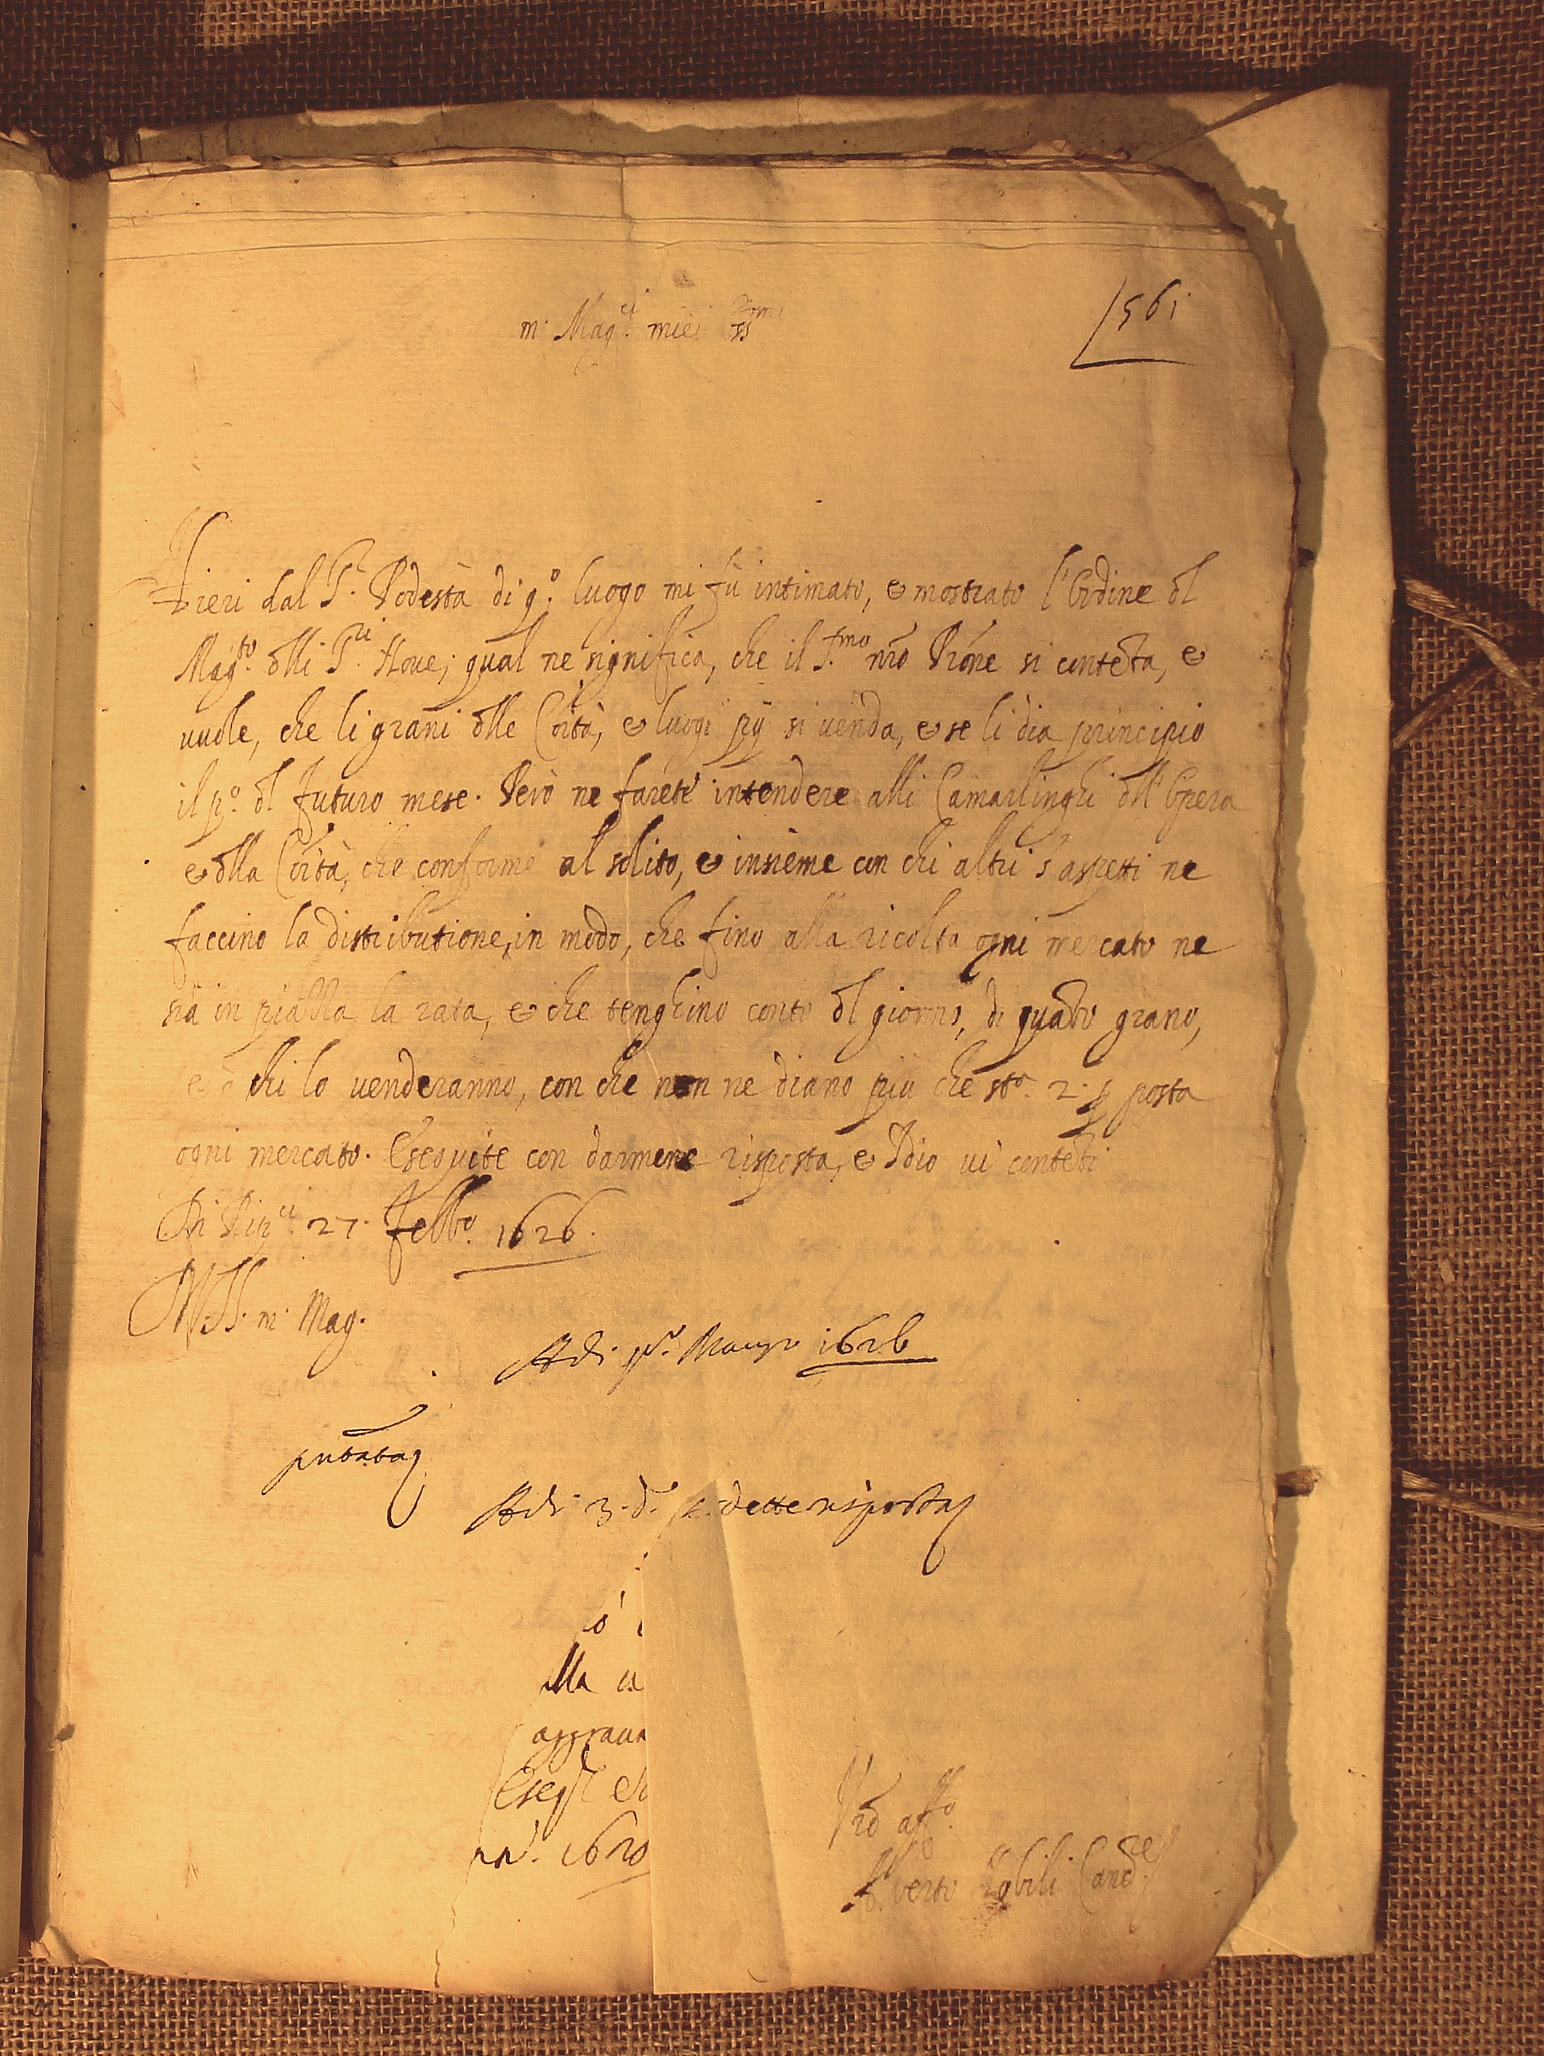 m. Mag.ci miei
561
Hieri dal S.r Podestà di q.o luogo mi fù intimato, e mostrato l'Ordine dl
Mag.to dlli S.ri Nove; qual ne significa, che il S.mo nrō Prōne si contēta, e
vuole, che li grani dlle Cōità, e luogi pij si vēda, e se li dia principio
il p.o dl futuro mese. Però ne farete intendere alli Camarlinghi dll'Opera
e dlla Cōità, che conforme al solito, e insieme con chi altri s'aspetti ne
faccino la distributione, in modo, che fino alla ricolta ogni mercato ne
sia in piazza la rata, e che tenghino conto dl giorno, di quāto grano,
e à chi lo venderanno, con che non ne diano più che st.a 2. p posta
ogni mercato. Eseguite con darmene risposta, e Idio vi contēti
Di 27. Febb.o 1626.
m. Mag.
Adi p.o Marzo 1626
Adi 3. d.o dette risposta
lla
aggrava
1620
Vrō aff.o
Nobili Canc.re